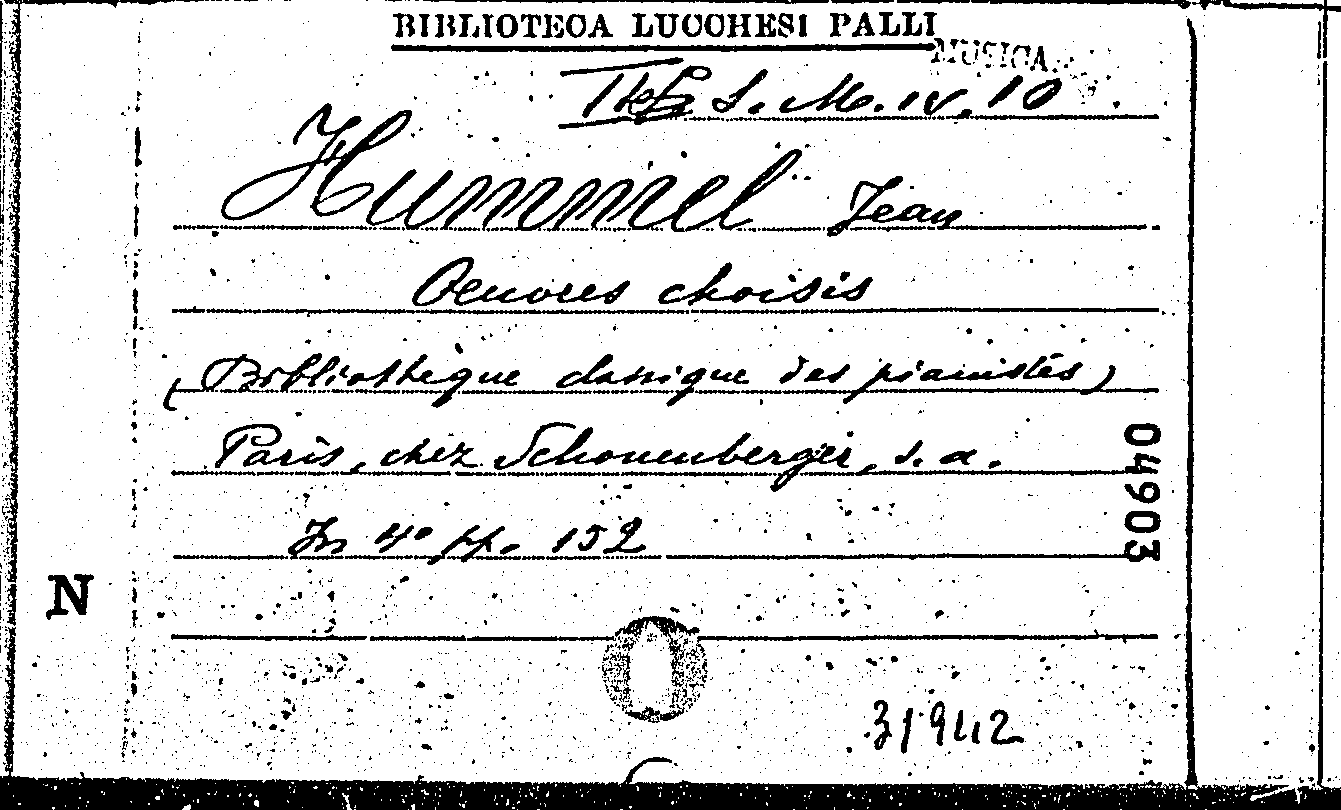 BIBLIOTECA LUCCHESI PALLI
MUSICA
S. M. IV. 10
Hummel Jean
Oeuvres choisis
(Bibliothèque classique des pianistes)
Paris, chez Schonenberger, s. a.
In 4° pp. 152
04903
N
31942